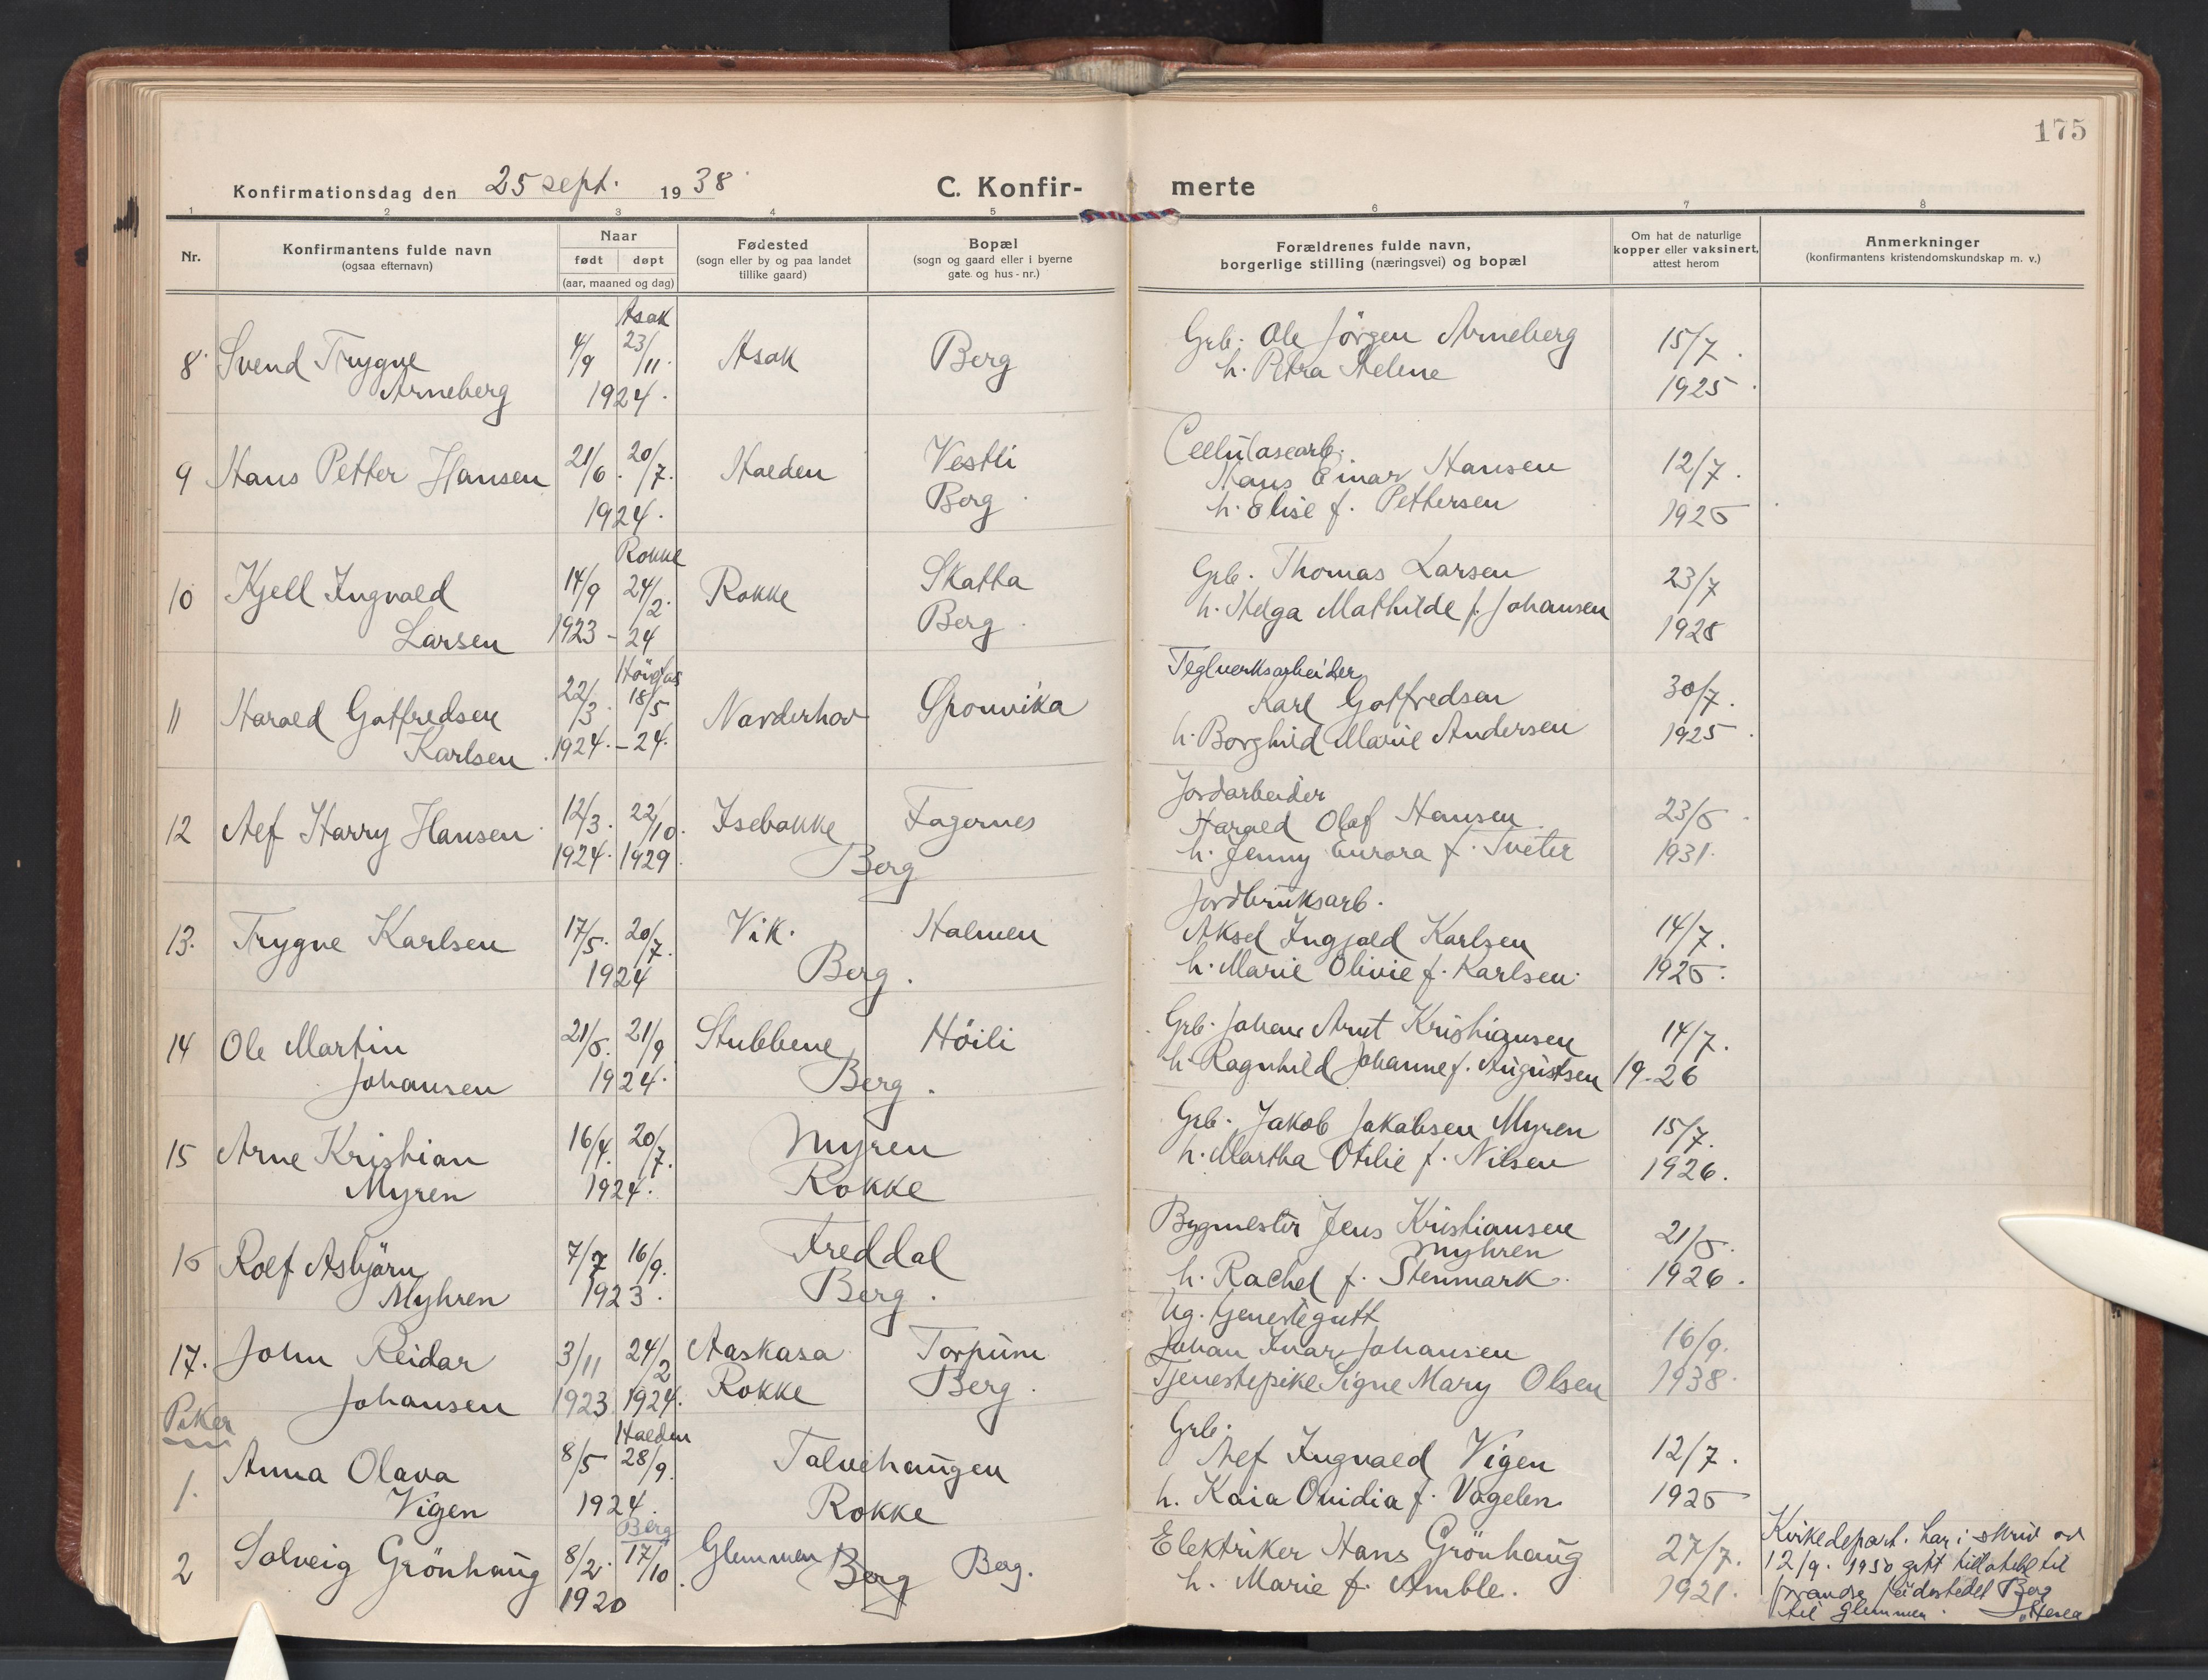 175
Konfirmationsdag den 25 sept. 1938
C. Konfir- merte
1 2 3 4 5 6 7 8
Nr.
Konfirmantens fulde navn
(ogsaa efternavn)
Naar
født døpt
(aar, maaned og dag)
Fødested
(sogn eller by og paa landet
tillike gaard)
Bopæl
(sogn og gaard eller i byerne
gate og hus - nr.)
Forældrenes fulde navn,
borgerlige stilling (næringsvei) og bopæl
Om hat de naturlige
kopper eller vaksinert,
attest herom
Anmerkninger
(konfirmantens kristendomskundskap m. v.)
Asak
8 Svend Trygve 4/9 23/11. Asak Berg Grb. Ole Jörgen Arneberg 15/7.
Arneberg 1924. h. Petra Helene 1925.
Cellulosearb.
9 Hans Petter Hansen 21/6. 20/7. Halden Vestli Hans Einar Hansen 12/7.
1924. Berg h. Elise f. Pettersen 1926
Rokke
10 Kjell Ingvald 14/9 24/2. Rokke Skatta Grb. Thomas Larsen 23/7
Larsen 1923 - 24 Berg h. Helga Mathilde f. Johansen 1928
Teglverksarbeider
11 Harald Gotfredsen 22/3. 18/5 Norderhov Sponvika Karl Gotfredsen 30/7.
Karlsen 1924. - 24. h. Borghild Marie Andersen 1925.
Jordarbeider
12 Alf Harry Hansen 12/3. 22/10. Isebakke Fagernes Harald Olaf Hansen 23/6
1924. 1929. Berg h. Jenny Aurora f. Tveter 1931.
Jordbruksarb.
13. Trygve Karlsen 17/5. 20/7. Vik. Holmen Aksel Ingjald Karlsen 14/7.
1924 Berg. h. Marie Olivie f. Karlsen. 1926.
14 Ole Martin 21/6. 21/9 Stubbene Höili Grb. Johan Arnt Kristiansen 14/7.
Johansen 1924. Berg. h. Ragnhild Johanne f. Augustsen 19-26
15 Arne Kristian 16/4. 20/7. Myren Grb. Jakob Jakobsen Myren 15/7.
Myren 1924. Rokke h. Martha Otilie f. Nilsen 1926.
16 Rolf Asbjörn 7/7 16/9. Freddal Bygmester Jens Kristiansen 21/6.
Myhren
Myhren 1923. Berg. h. Rachel f. Stenmark. 1926.
Ug. tjenestegutt
17. John Reidar 3/11 24/2 Aaskasa Torpum Johan Ivar Johansen 16/9.
Johansen 1923 1924. Rokke Berg. Tjenestepike Signe Mary Olsen 1938.
Piker
Halden Grb.
1. Anna Olava 8/5 28/9. Talvehaugen Alf Ingvald Vigen 12/7.
Vigen 1924. Rokke h. Kaia Ovidia f. Vagelen 1926
Berg
2 Solveig Grönhaug 8/2. 17/10. Glemmen Berg Berg. Elektriker Hans Grönhaug 27/7.
1920 h. Marie f. Amble. 1921.
Kirkedepart. har i skriv av
12/9. 1950 gitt tillatelse til
forandre födestedet Berg
til Glemmen.